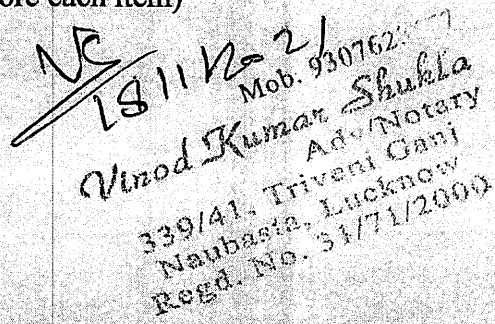 ore each item)
18/11/2021
Mob. 9307623
Vinod Kumar Shukla
Adv/Notary
339/41, Triveni Ganj
Naubasta, Lucknow
Regd. No. 31/71/2000